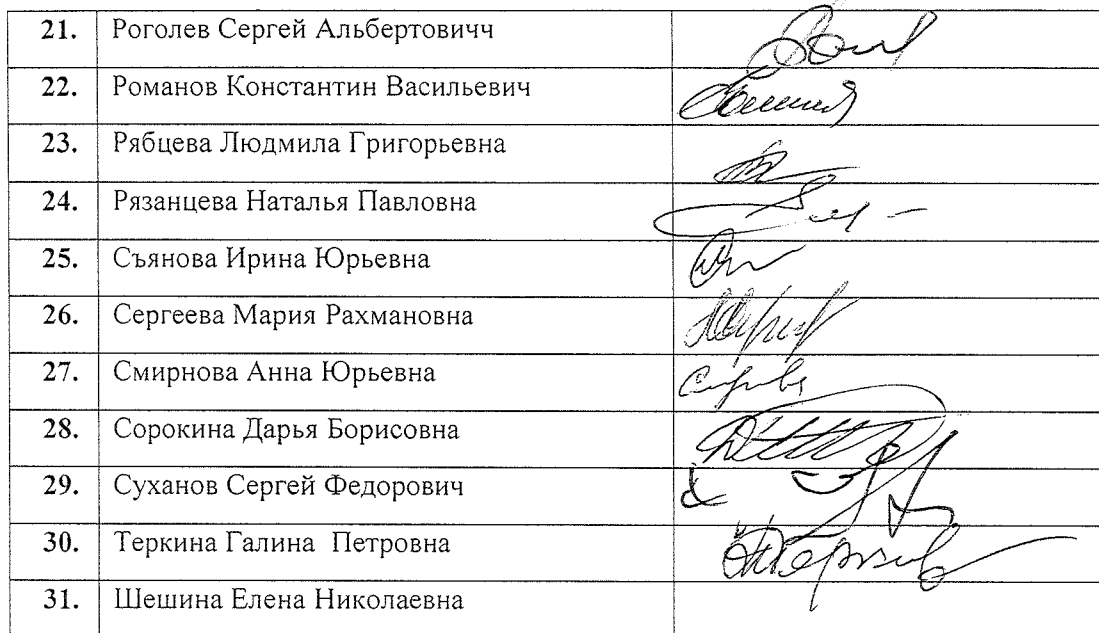 21. Роголев Сергей Альбертовичч
22. Романов Константин Васильевич
23. Рябцева Людмила Григорьевна
24. Рязанцева Наталья Павловна
25. Съянова Ирина Юрьевна
26. Сергеева Мария Рахмановна
27. Смирнова Анна Юрьевна
28. Сорокина Дарья Борисовна
29. Суханов Сергей Федорович
30. Теркина Галина Петровна
31. Шешина Елена Николаевна